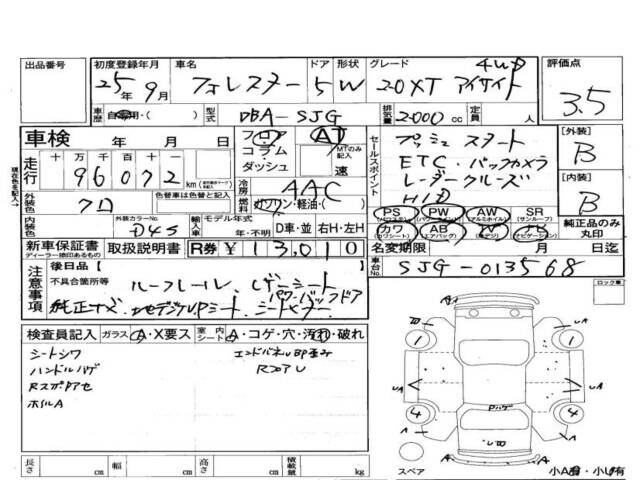 出品番号
初度登録年月
25年 9月
車名
フォレスター
ドア
5
形状
W
グレード
4WD
2.0XT アイサイト
評価点
3.5
車歴
自家用・( )
型式
DBA-SJG
排気量
2000 cc
定員
人
車検
年 月 日
フロア
コラム
ダッシュ
AT
MTのみ記入
速
セールスポイント
プッシュスタート
ETC・バックカメラ
レーダークルーズ
HID
[外装]
B
[内装]
B
現在色を記入→
走行
十 万 千 百 十 一
96072
km
冷房
AAC
燃料
ガソリン・軽油・( )
外装色
クロ
色替車は色替と記入
内装色
外装カラーNo.
D4S
輸入車
モデル年式
年・不明
D車・並
右H・左H
PS
(パワステ)
PW
(パワーウィンド)
AW
(アルミホイル)
SR
(サンルーフ)
カワ
(カワシート)
AB
(エアバッグ)
(ナビゲーション)
純正品のみ丸印
新車保証書
ディーラー捺印あるもの
取扱説明書
R券
¥13,010
名変期限
月 日迄
車台No.
SJG-013568
注意事項
後日品【 】
不具合箇所等
ルーフレール、レザーシート
パワーバックドア
純正ナビ、地デジ、VPシート、シートヒーター
検査員記入
ガラス
A・X要ス
室内シート
A・コゲ・穴・汚れ・破れ
シートシワ
ハンドルハゲ
ホイルA
エンドパネルBP歪み
RコアU
ロック車
1
1
4
4
スペア
小A有・小U有
長さ
cm
幅
cm
高さ
cm
積載量
kg